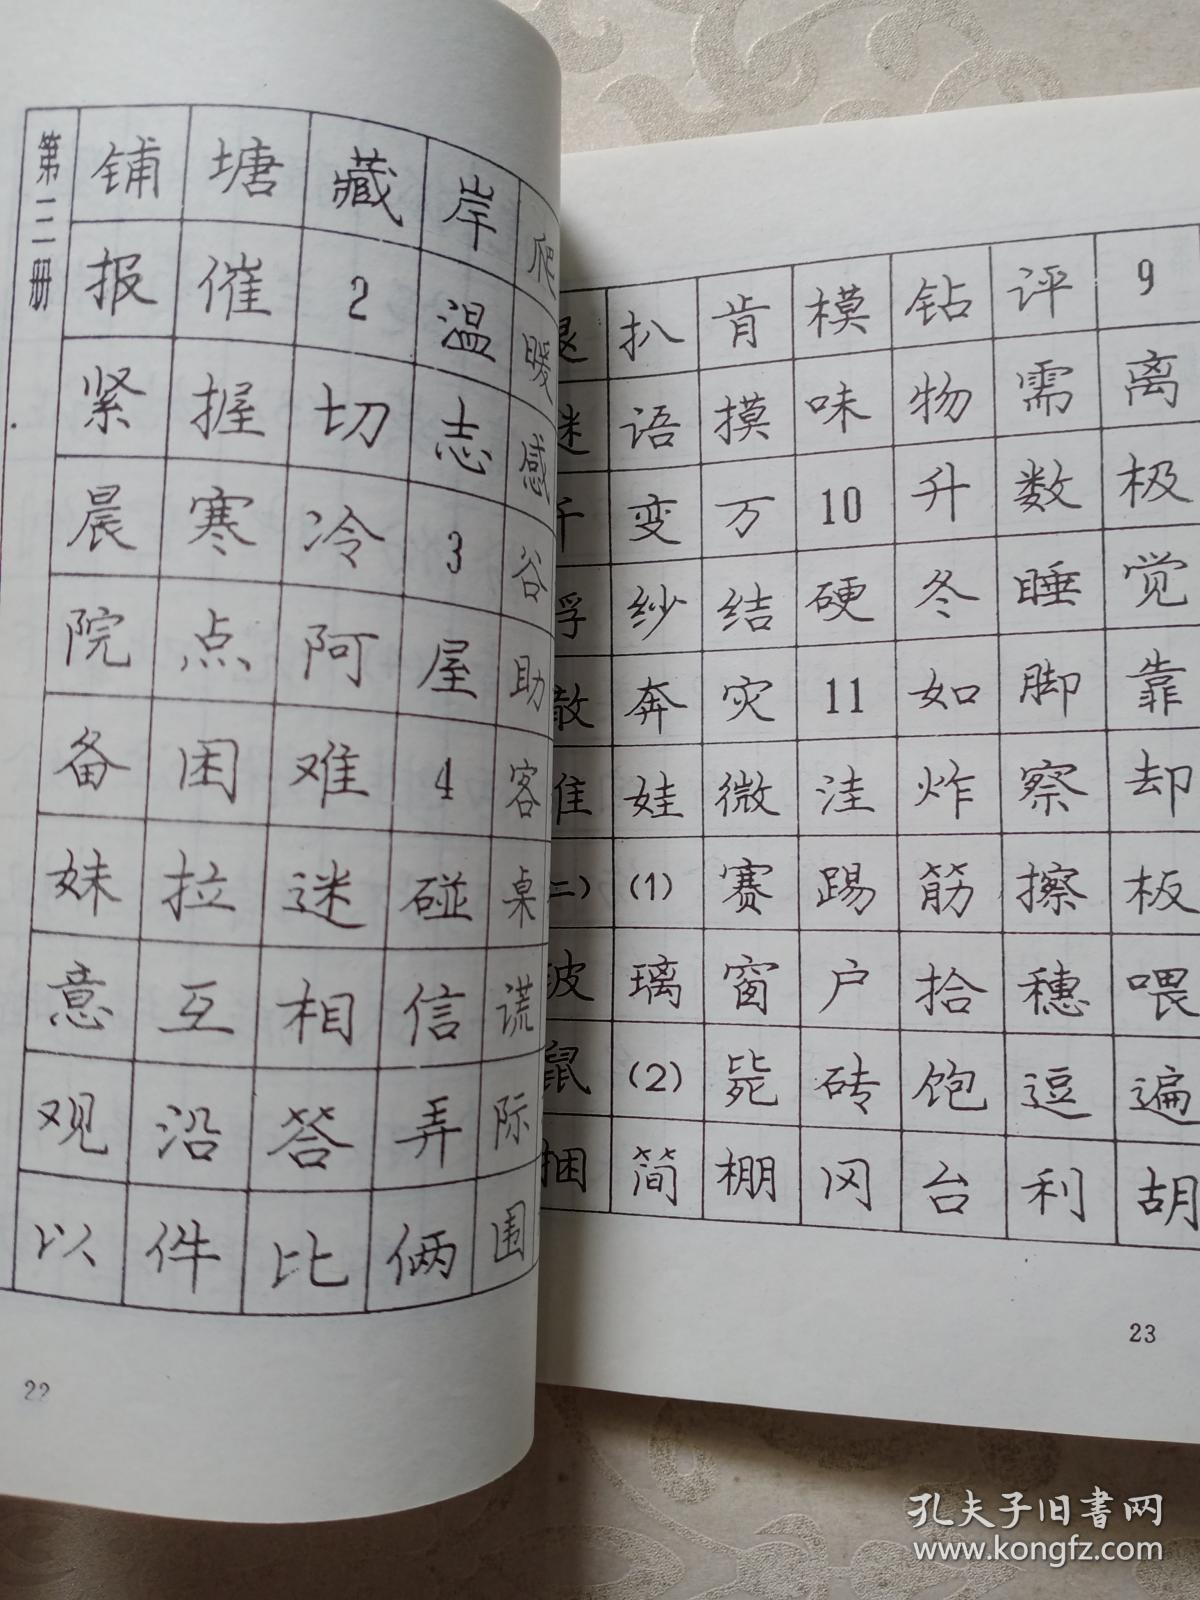 第三册
铺 塘 藏 岸 爬
报 催 2 温 暖
紧 握 切 志 感
晨 寒 冷 3 谷
院 点 阿 屋 助
备 困 难 4 客
妹 拉 迷 碰 桌
意 互 相 信 谎
观 沿 答 弄 际
以 件 比 俩 围
22
扒 肯 模 钻 评 9
语 摸 味 物 需 离
变 万 10 升 数 极
纱 结 硬 冬 睡 觉
散 奔 灾 11 如 脚 靠
娃 微 洼 炸 察 却
(1) 赛 踢 筋 擦 板
璃 窗 户 拾 穗 喂
鼠 (2) 毙 砖 饱 逗 遍
捆 简 棚 冈 台 利 胡
23
孔夫子旧书网
www.kongfz.com